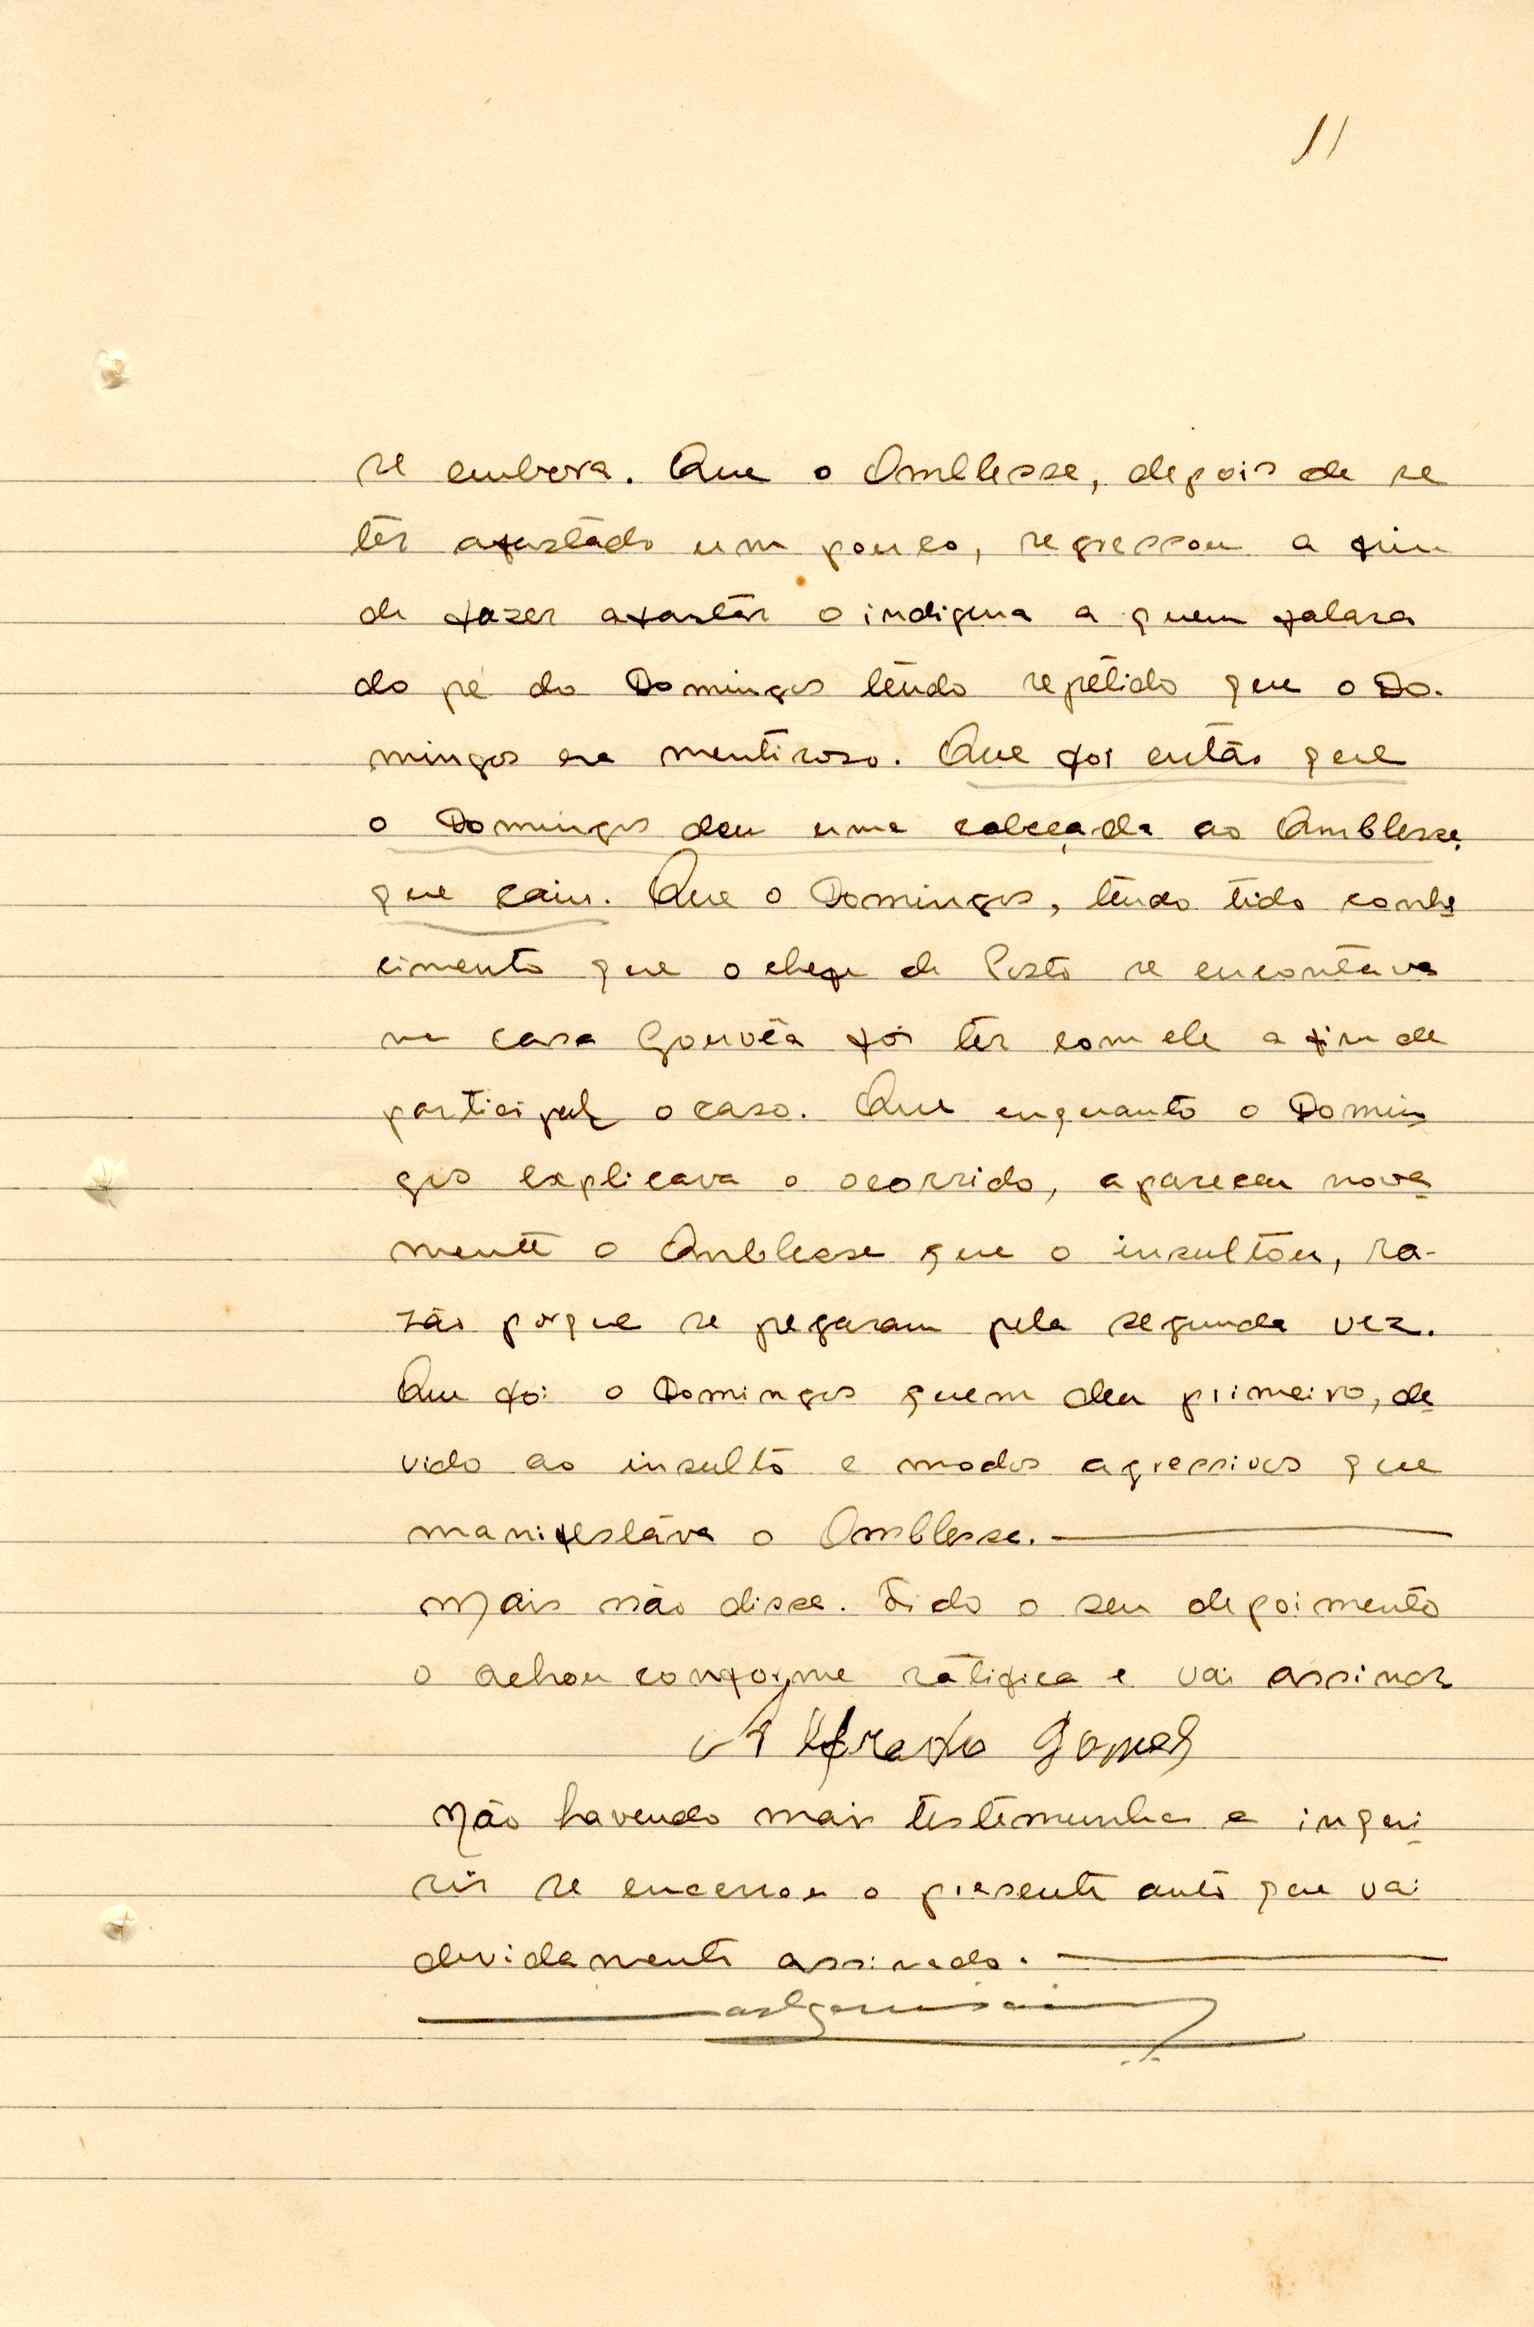 11
se embora. Que o Amblesse, depois de se
ter afastado um pouco, regressou a fim
de fazer afastar o indigena a quem falara
do pé do Domingos tendo repetido que o Do-
mingos era mentiroso. Que foi então que
o Domingos deu uma cabeçada ao Amblesse,
que caiu. Que o Domingos, tendo tido conhe
cimento que o chefe de Posto se encontava
na casa Gouvêa foi ter com ele a fim de
participar o caso. Que enquanto o Domin
gos explicava o ocorrido, apareceu nova
mente o Amblesse que o insultou, ra-
zão porque se pegaram pela segunda vez.
Que foi o Domingos quem deu primeiro, de
vido ao insulto e modos agressivos que
manifestava o Amblesse.
Mais não disse. Lido o seu depoimento
o achou conforme ratifica e vai assinar
Alfredo Gomes
Não havendo mais testemunhas a inqui
rir se encerrou o presente auto que vai
devidamente assinado.